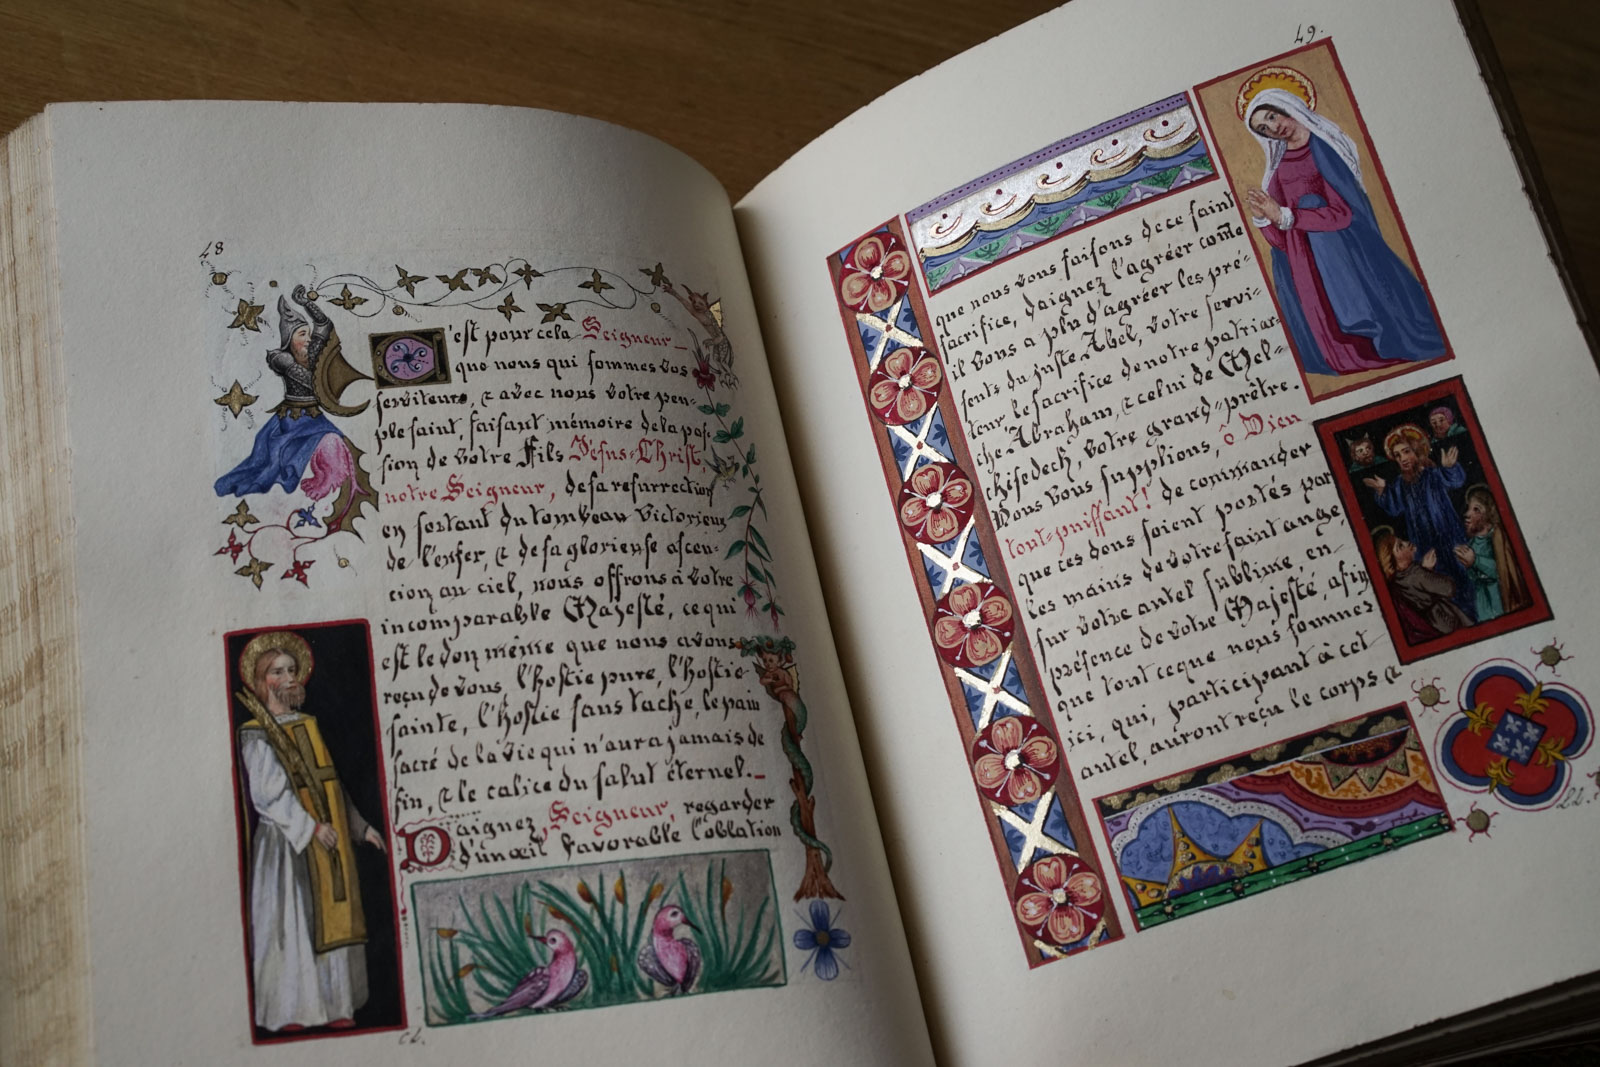 48
C'est pour cela Seigneur
que nous qui sommes vos
serviteurs, & avec nous votre peu-
ple saint, faisant mémoire de la pas-
sion de votre Fils Jésus-Christ,
notre Seigneur, de sa resurrection
en sortant du tombeau victorieux
de l'enfer, & de sa glorieuse ascen-
cion au ciel, nous offrons à votre
incomparable Majesté, ce qui
est le don même que nous avons
reçu de vous, l'hostie pure, l'hostie
sainte, l'hostie sans tache, le pain
sacré de la vie qui n'aura jamais de
fin, & le calice du salut éternel.
Daignez, Seigneur, regarder
d'un œil favorable l'oblation
49.
que nous vous faisons de ce saint
sacrifice, daignez l'agréer come
il vous a plu d'agréer les pré-
sents du juste Abel, votre servi-
teur, le sacrifice de notre patriar-
che Abraham, & celui de Mel-
chisedech, votre grand-prêtre.
Nous vous supplions, ô Dieu
tout-puissant! de commander
que ces dons soient portés par
les mains de votre saint ange,
sur votre autel sublime, en
présence de votre Majesté, afin
que tout ce que nous sommes
ici, qui, participant à cet
autel, auront reçu le corps &